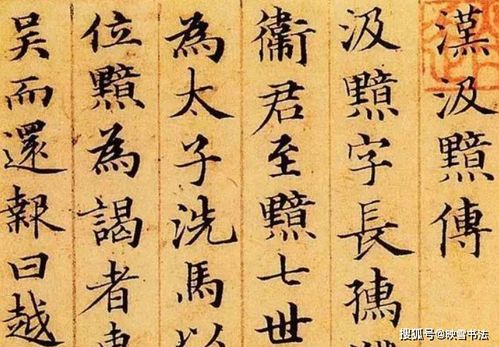 漢汲黯傳
汲黯字長孺
衛君至黯七世
為太子洗馬以
位黯為謁者
吳而還報曰越
搜狐号@映雪书法